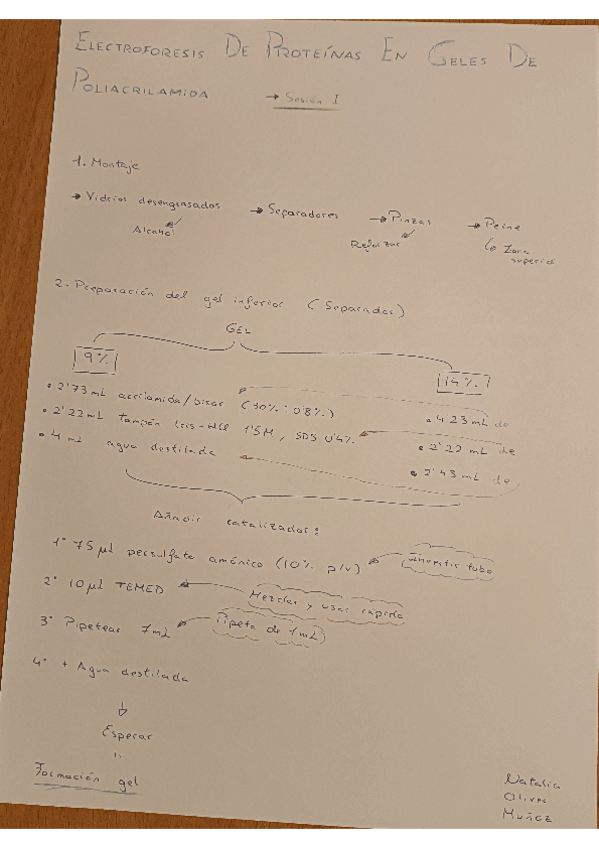 ELECTROFORESIS DE PROTEÍNAS EN GELES DE
POLIACRILAMIDA → Sesión I
1. Montaje
→ Vidrios desengrasados → Separadores → Pinzas → Peine
Alcohol Reforzar ↳ Zona
superior
2. Preparación del gel inferior (Separador)
GEL
9% 14%
• 2'73 mL acrilamida/bisac (30% : 0'8%) • 4 23 mL de
• 2'22 mL tampón tris-HCl 1'5M, SDS 0'4% • 2'22 mL de
• 4 mL agua destilada • 2'43 mL de
Añadir catalizador:
1º 75 µl persulfato amónico (10% p/v) ← Invertir tubo
2º 10 µl TEMED ← Mezclar y usar rápido
3º Pipetear 7mL ← Pipeta de 1mL
4º + Agua destilada
↓
Esperar
Formación gel
Natalia
Oliver
Muñoz